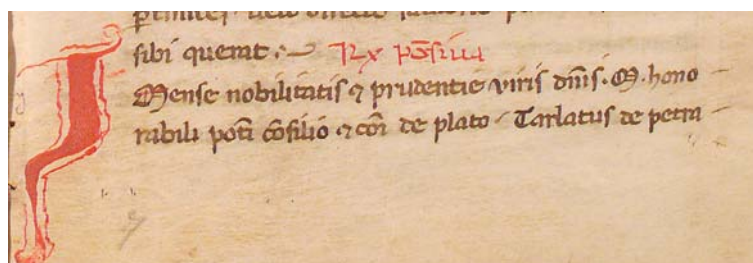 sibi querat .
Rx põsiua
Mense nobilitatis ⁊ prudentie viris dñis . M . hono
rabili poti cõsilio ⁊ cõi de plato Tarlatus de petra